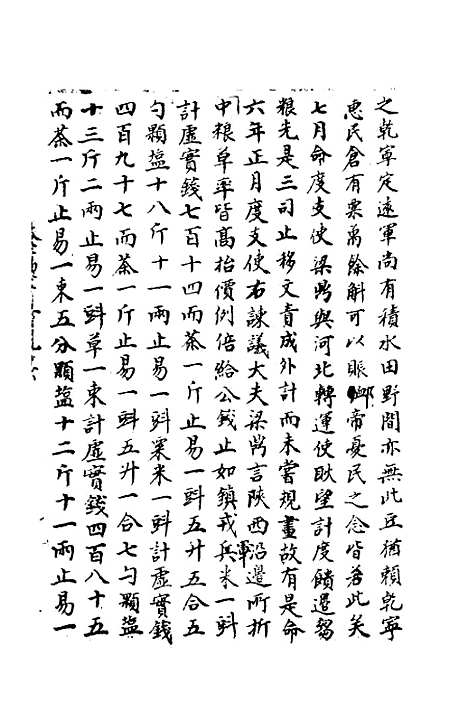 之乾寧定遠軍尚有積水田野間亦無此豆猶賴乾寧
惠民倉有粟萬餘斛可以賑卹帝憂民之念皆若此矣
七月命度支使梁鼎與河北轉運使耿望計度饋邊芻
粮先是三司止移文責成外計而未嘗規畫故有是命
六年正月度支使右諫議大夫梁鼎言陝西沿邊所折
中粮草率皆高抬價例倍給公錢止如鎮戎軍兵米一斗
計虛實錢七百十四而茶一斤止易一斗五升五合五
勺顆塩十八斤十一兩止易一斗粟米一斗計虛實錢
四百九十七而茶一斤止易一斗五升一合七勺顆塩
十三斤二兩止易一斗草一束計虛實錢四百八十五
而茶一斤止易一束五分顆塩十二斤十一兩止易一